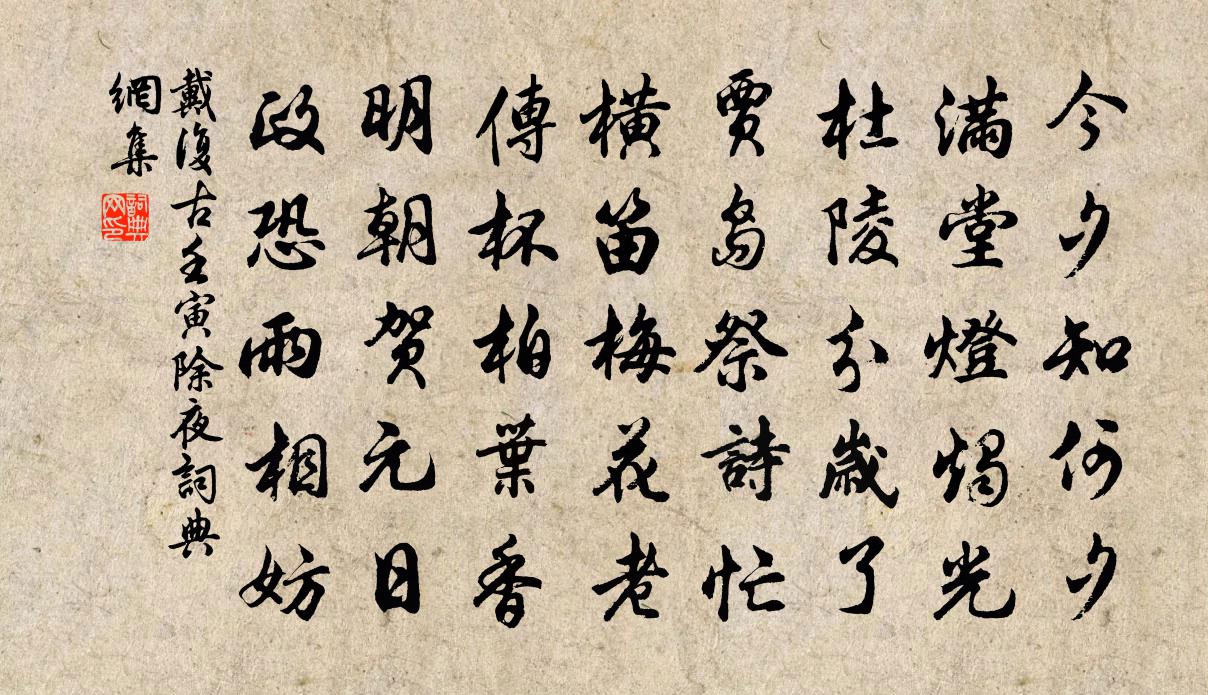 今夕知何夕
滿堂燈燭光
杜陵分歲了
賈島祭詩忙
橫笛梅花老
傳杯柏葉香
明朝賀元日
政恐雨相妨
戴復古壬寅除夜詞典
網集
詞典網印